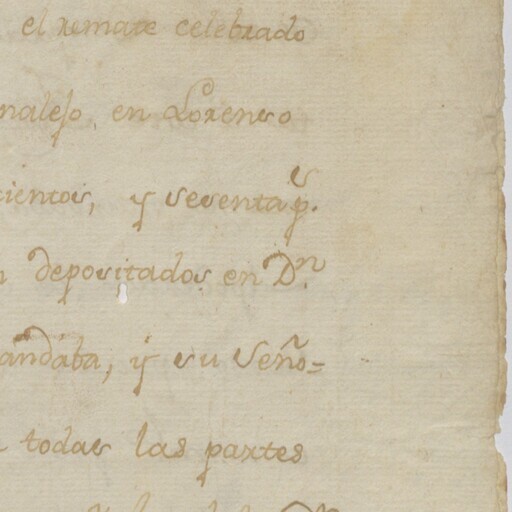 el remate celebrado
nalejo, en Lorenso
cientos, y sesenta p.s
depositados en D.n
andába, y su Seño=
todas las partes